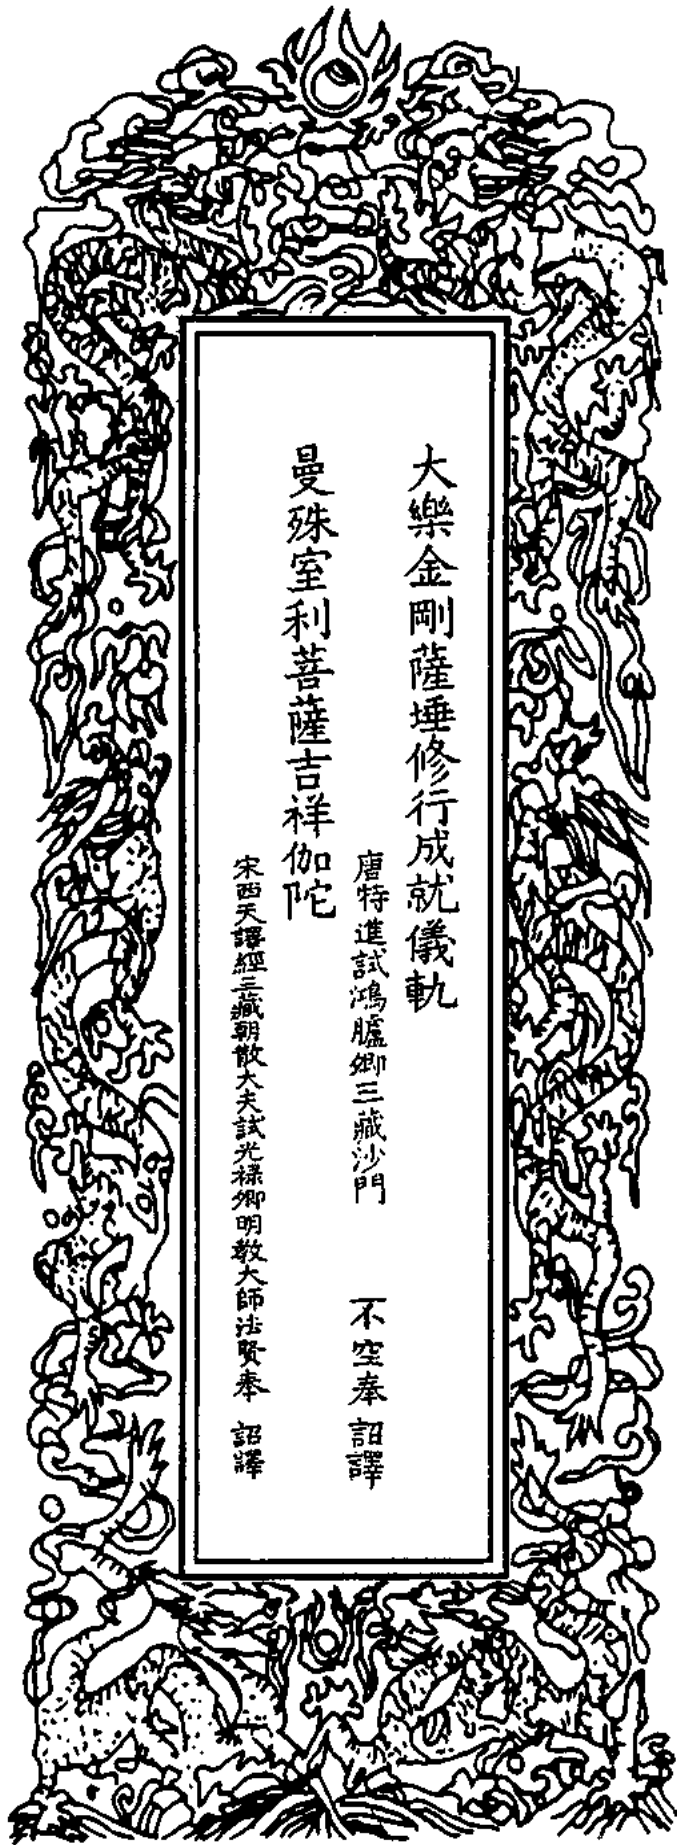 大樂金剛薩埵修行成就儀軌
唐特進試鴻臚卿三藏沙門　不空奉　詔譯
曼殊室利菩薩吉祥伽陀
宋西天譯經三藏朝散大夫試光祿卿明教大師法賢奉　詔譯